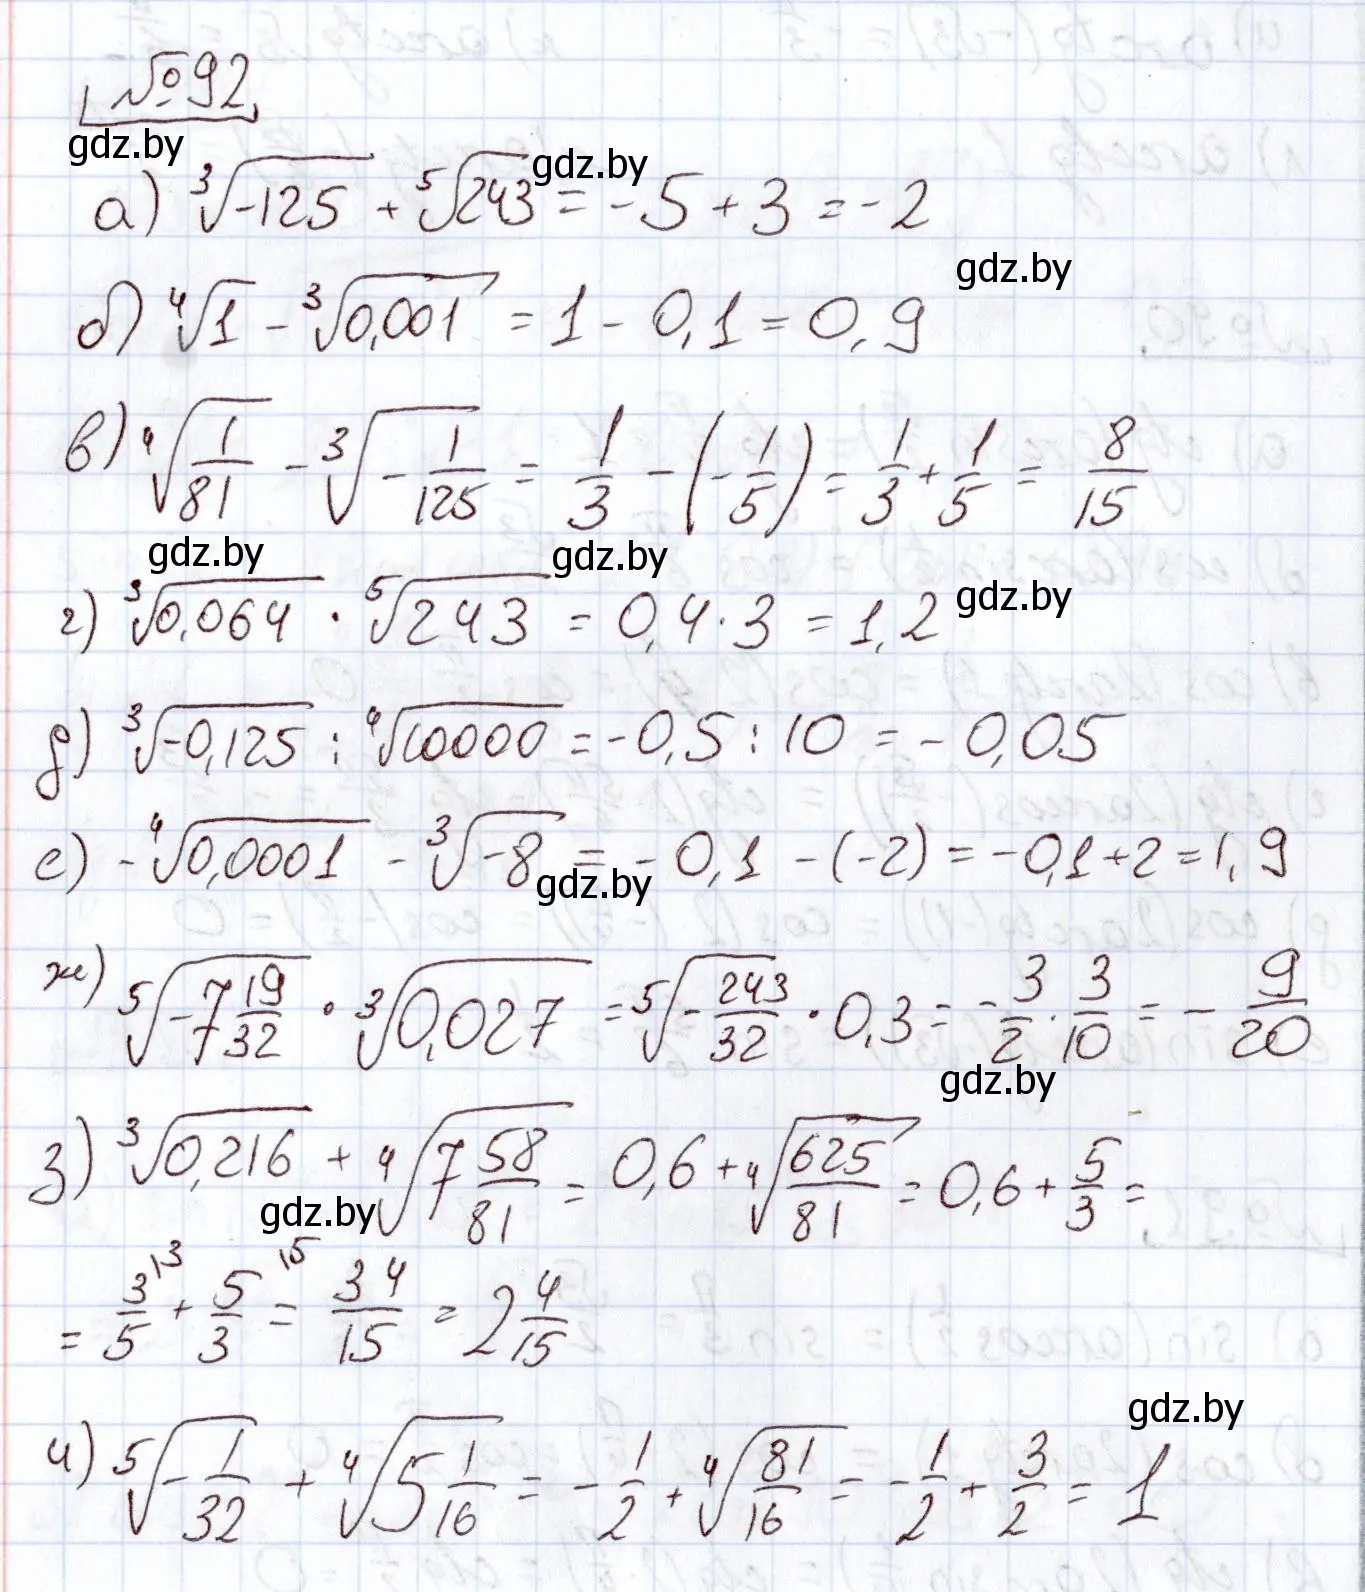 №92
gdz.by
а) ∛(-125) + ⁵√243 = -5 + 3 = -2
gdz.by
gdz.by
б) ⁴√1 - ∛0,001 = 1 - 0,1 = 0,9
в) ⁴√(1/81) - ∛(-1/125) = 1/3 - (-1/5) = 1/3 + 1/5 = 8/15
gdz.by
gdz.by
gdz.by
г) ∛0,064 · ⁵√243 = 0,4 · 3 = 1,2
д) ∛(-0,125) : ⁴√10000 = -0,5 : 10 = -0,05
е) -⁴√0,0001 - ∛(-8) = -0,1 - (-2) = -0,1 + 2 = 1,9
gdz.by
ж) ⁵√(-7 19/32) · ∛0,027 = ⁵√(-243/32) · 0,3 = -3/2 · 3/10 = -9/20
gdz.by
з) ∛0,216 + ⁴√(7 58/81) = 0,6 + ⁴√(625/81) = 0,6 + 5/3 =
gdz.by
= 3/5 \3 + 5/3 \5 = 34/15 = 2 4/15
gdz.by
и) ⁵√(-1/32) + ⁴√(5 1/16) = -1/2 + ⁴√(81/16) = -1/2 + 3/2 = 1